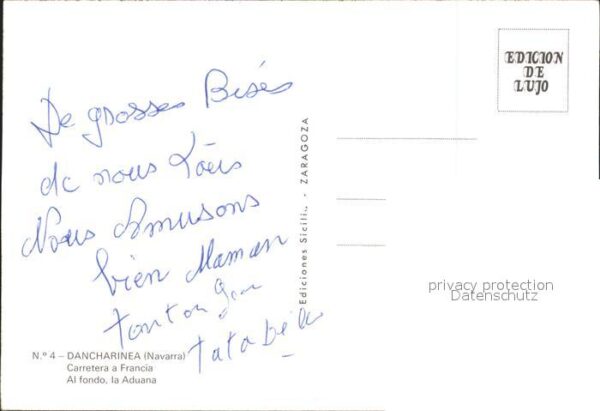 De grosses Bisés
de nous Tous
Nous Amusons
bien Maman
tonton
tata
N.º 4 – DANCHARINEA (Navarra)
Carretera a Francia
Al fondo, la Aduana
Ediciones Sicilia, - ZARAGOZA
EDICION
DE
LUJO
privacy protection
Datenschutz